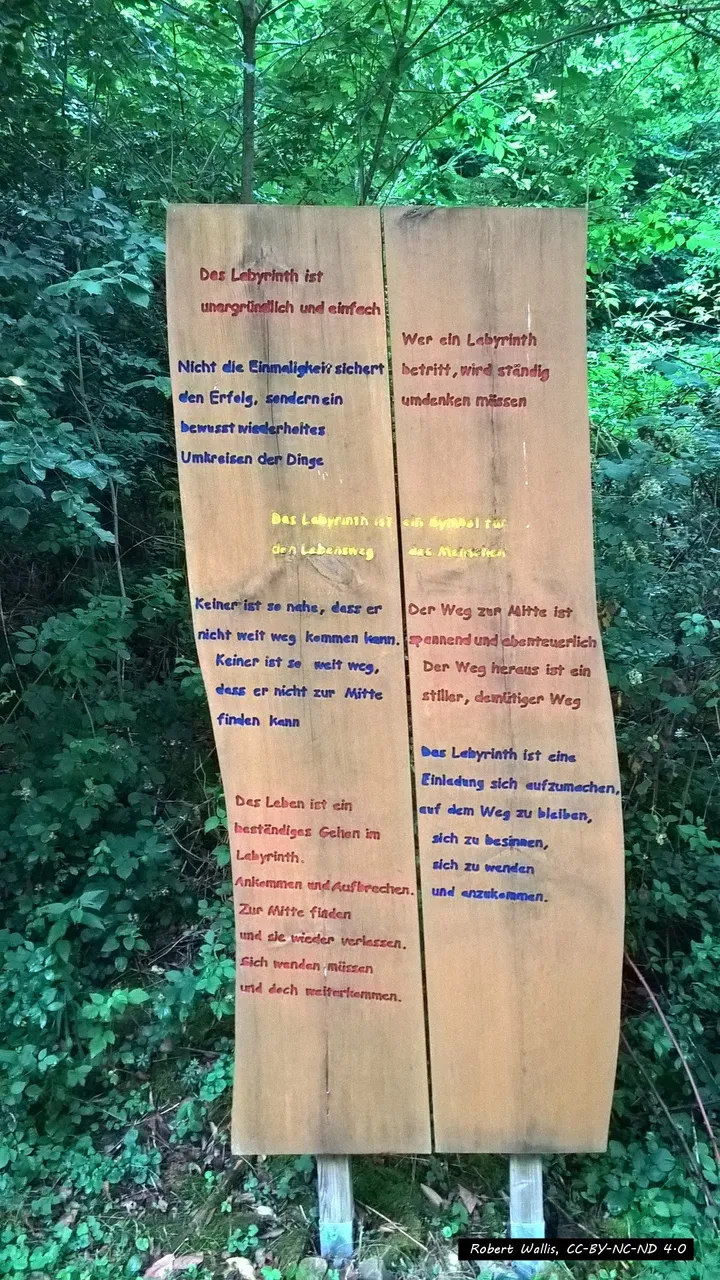 Das Labyrinth ist
unergründlich und einfach
Nicht die Einmaligkeit sichert
den Erfolg, sondern ein
bewusst wiederholtes
Umkreisen der Dinge
Wer ein Labyrinth
betritt, wird ständig
umdenken müssen
Das Labyrinth ist ein Symbol für
den Lebensweg des Menschen
Keiner ist so nahe, dass er
nicht weit weg kommen kann.
Keiner ist so weit weg,
dass er nicht zur Mitte
finden kann
Das Leben ist ein
beständiges Gehen im
Labyrinth.
Ankommen und Aufbrechen.
Zur Mitte finden
und sie wieder verlassen.
Sich wenden müssen
und doch weiterkommen.
Der Weg zur Mitte ist
spannend und abenteuerlich
Der Weg heraus ist ein
stiller, demütiger Weg
Das Labyrinth ist eine
Einladung sich aufzumachen,
auf dem Weg zu bleiben,
sich zu besinnen,
sich zu wenden
und anzukommen.
Robert Wallis, CC-BY-NC-ND 4.0